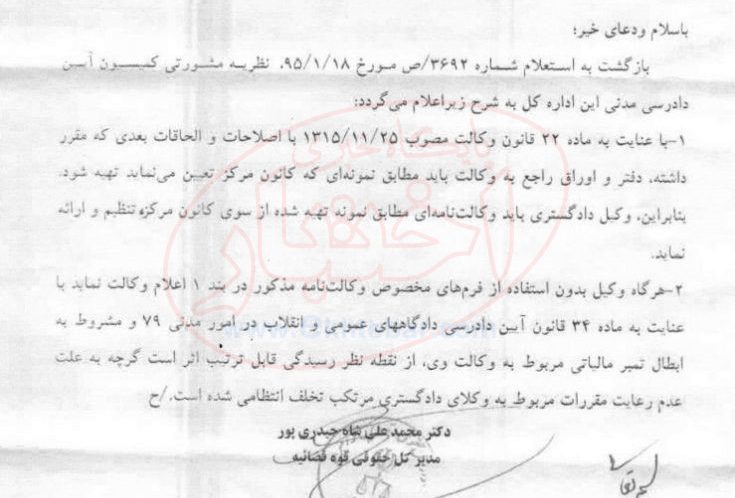 باسلام ودعای خیر؛
بازگشت به استعلام شماره ۳۶۹۲/ص مورخ ۹۵/۱/۱۸، نظریه مشورتی کمیسیون آیین
دادرسی مدنی این اداره کل به شرح زیراعلام می‌گردد:
۱-با عنایت به ماده ۲۲ قانون وکالت مصوب ۱۳۱۵/۱۱/۲۵ با اصلاحات و الحاقات بعدی که مقرر
داشته، دفتر و اوراق راجع به وکالت باید مطابق نمونه‌ای که کانون مرکز تعیین می‌نماید تهیه شود.
بنابراین، وکیل دادگستری باید وکالت‌نامه‌ای مطابق نمونه تهیه شده از سوی کانون مرکز، تنظیم و ارائه
نماید.
۲-هرگاه وکیل بدون استفاده از فرم‌های مخصوص وکالت‌نامه مذکور در بند ۱ اعلام وکالت نماید با
عنایت به ماده ۳۴ قانون آیین دادرسی دادگاههای عمومی و انقلاب در امور مدنی ۷۹ و مشروط به
ابطال تمبر مالیاتی مربوط به وکالت وی، از نقطه نظر رسیدگی قابل ترتیب اثر است گرچه به علت
عدم رعایت مقررات مربوط به وکلای دادگستری مرتکب تخلف انتظامی شده است./ح
دکتر محمد علی شاه حیدری پور
مدیر کل حقوقی قوه قضائیه
پایگاه خبری
اختبار